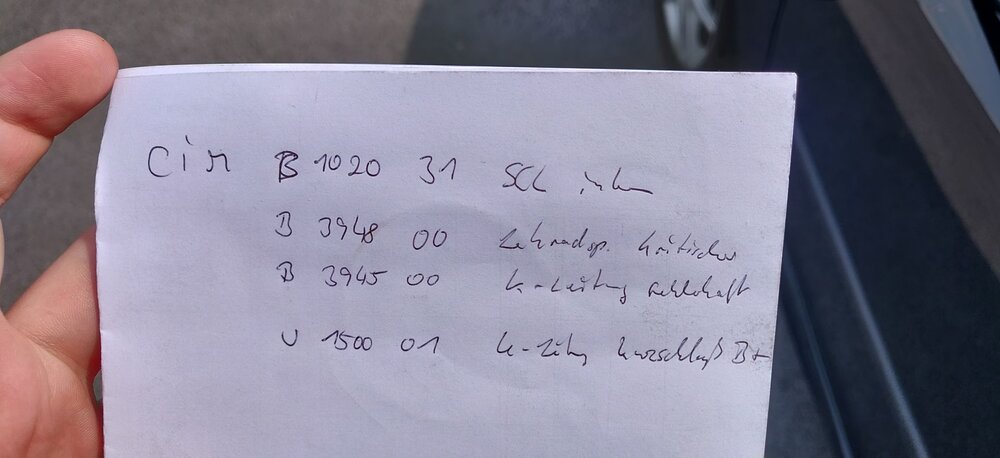 Cim B 1020 31 SCL intern
B 3948 00 Lenradsp. kritischer
B 3945 00 K-Leitung fehlerhaft
U 1500 01 K-Ltng Kurzschluß B+